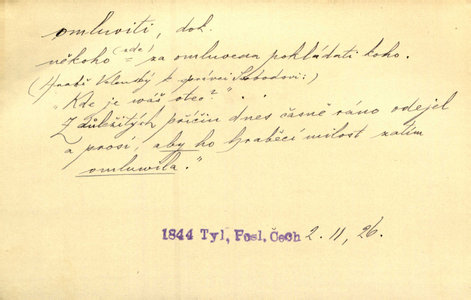 omluviti, dok.
někoho (kde) = za omluvena pokládati koho.
(Hrabě Volenský k správci Svobodovi:)
„Kde je wáš otec?“ . .
Z důležitých příčin dnes časně ráno odejel
a prosí, aby ho hraběcí milost zatím
omluwila.“
1844 Tyl, Posl. Čech 2. 11, 26.